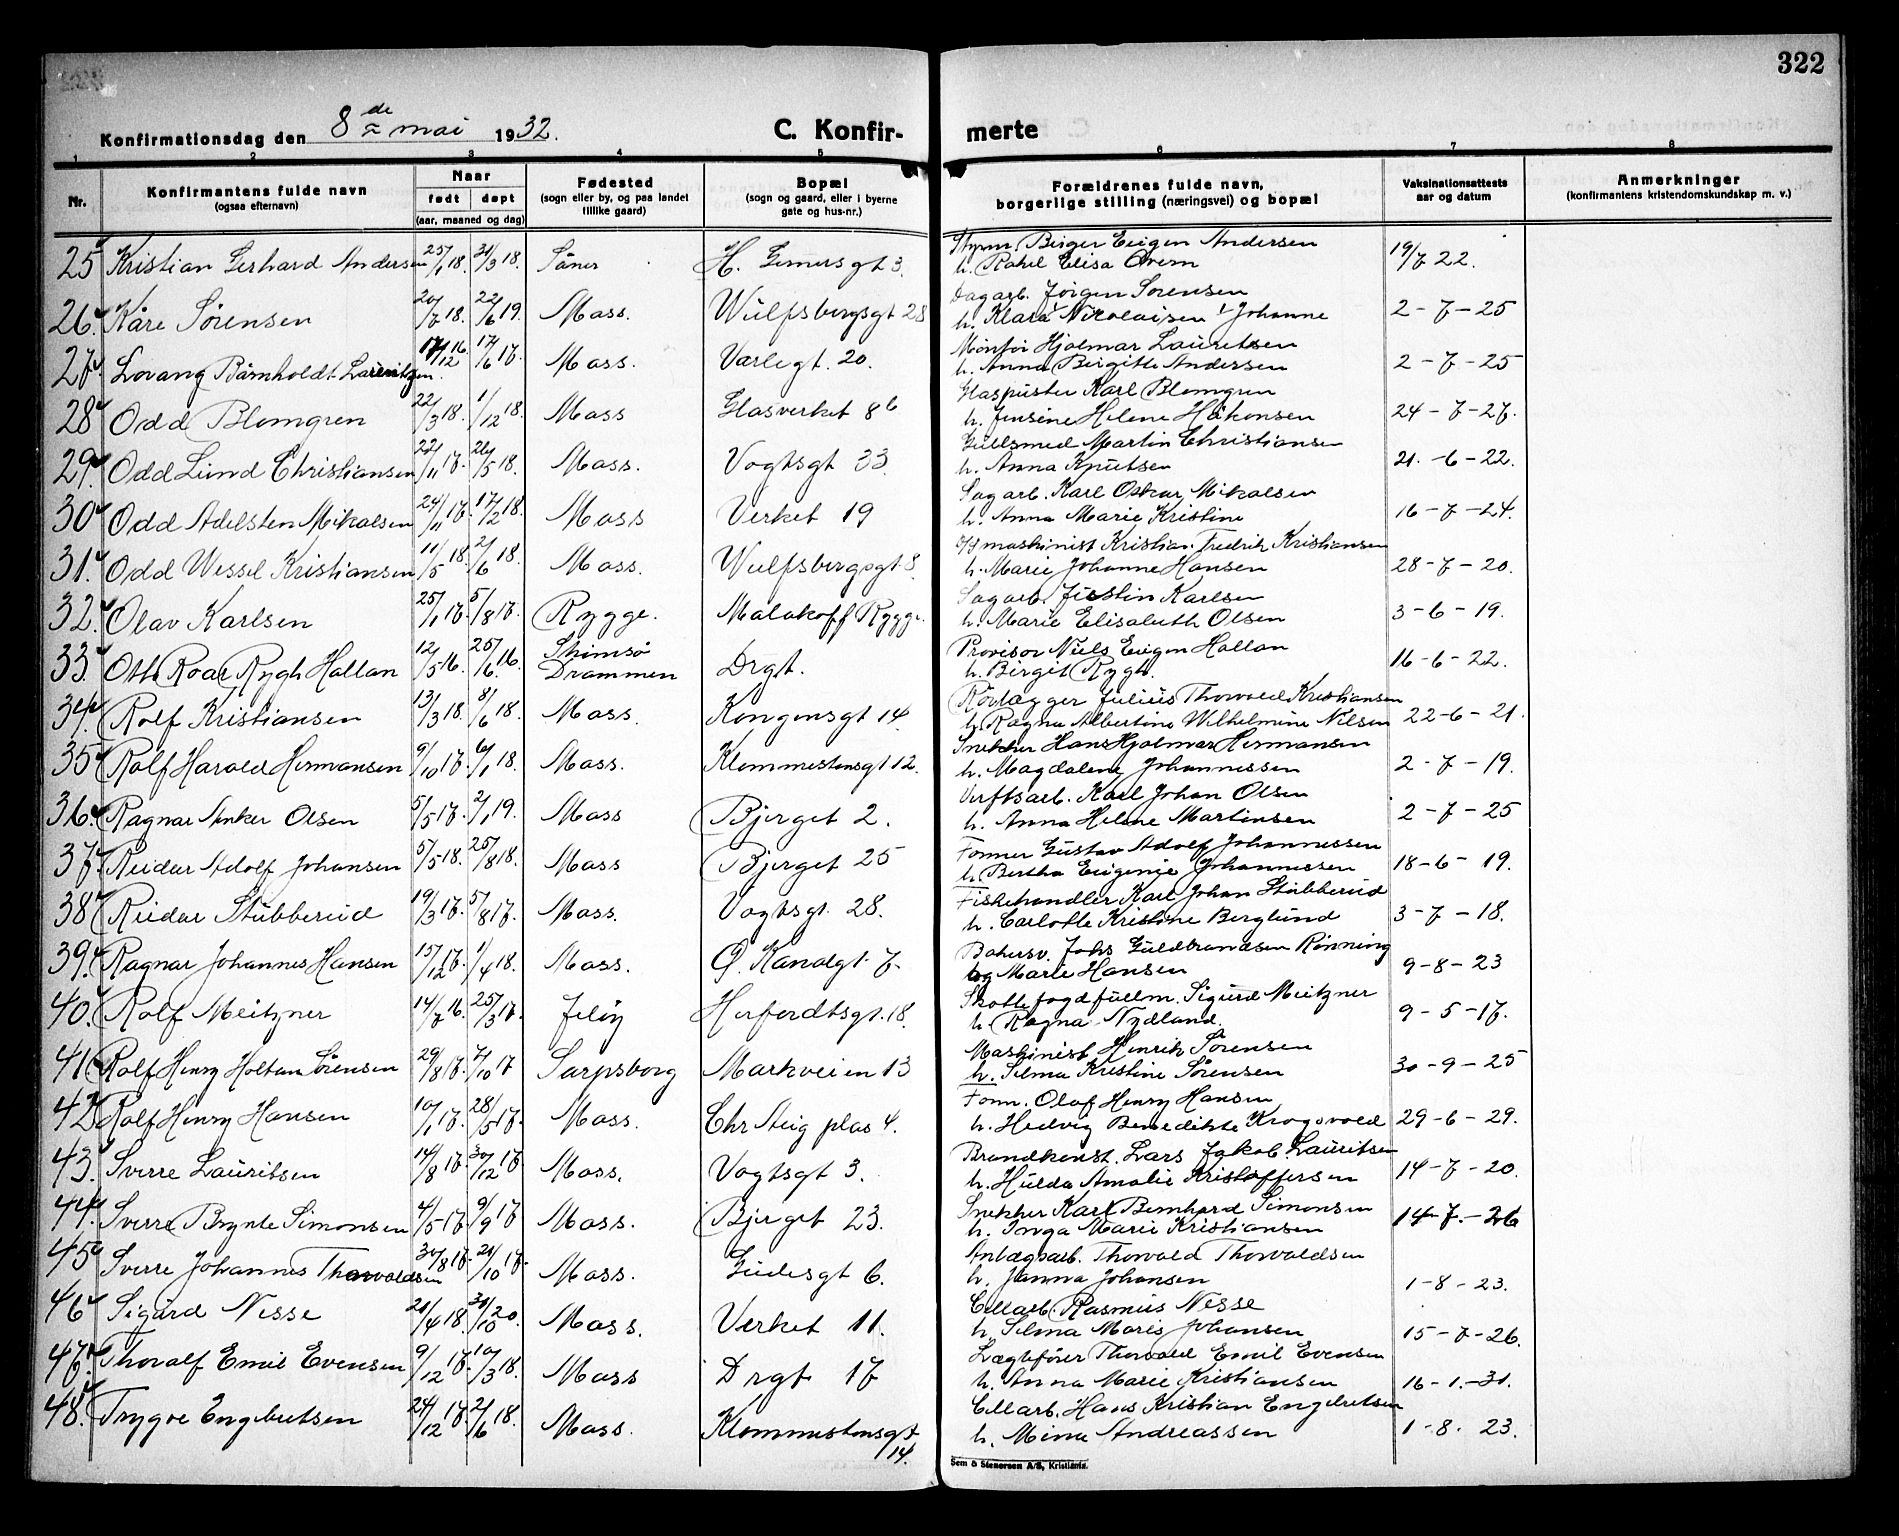 322
Konfirmationsdag den 8de mai 1932.
C. Konfir-
merte
1 2 3 4 5 6 7 8
Nr.
Konfirmantens fulde navn
(ogsaa efternavn)
Naar
født døpt
(aar, maaned og dag)
Fødested
(sogn eller by, og paa landet
tillike gaard)
Bopæl
(sogn og gaard, eller i byerne
gate og hus-nr.)
Forældrenes fulde navn,
borgerlige stilling (næringsvei) og bopæl
Vaksinationsattests
aar og datum
Anmerkninger
(konfirmantens kristendomskundskap m. v.)
25 Kristian Gerhard Andersen 25/1 18. 31/3 18. Såner H. Gernersgt 3. Styrm. Birger Eugen Andersen
h. Rakel Elisa Overn 19/7 22.
26. Kåre Sørensen 20/7 18. 22/6 19. Moss. Wulfsbergsgt 28 Dagarb. Jørgen Sørensen
h. Klara Nicolaisen Johanne 2-7-25
27. Lovang Bårnholdt Lauritzen. 17/12 16 17/6 17. Moss. Varlegt. 20. Mønfør Hjalmar Lauretsen
h. Anna Birgitte Andersen 2-7-25
28 Odd Blomgren 22/3 18. 1/12 18. Moss Glasverket 8b Glaspuster Karl Blomgren
h. Jensine Helene Håkonsen 24-7-27.
29. Odd Lund Christiansen 22/11 17. 26/5 18. Moss. Vogtsgt 33. Gullsmed Martin Christiansen
h. Anna Knutsen 21.-6-22.
30 Odd Adelsten Mikalsen 24/11 17. 17/2 18. Moss Verket 19 Sagarb. Karl Oskar Mikalsen
h. Anna Marie Kristine 16-7-24.
31. Odd Wessel Kristiansen 11/5 18. 2/6 18. Moss. Wulfsbergsgt. 8. maskinist Kristian Fredrik Kristiansen
h. Marie Johanne Hansen 28-7-20.
32. Olav Karlsen 25/1 17. 5/8 17. Rygge. Malakoff Rygge. Sagarb. Justin Karlsen
h. Marie Elisabeth Olsen 3-6-19.
33. Otto Roar Rygh Hallan 12/5 16. 25/6 16. Strømsø
Drammen Drgt. Provisor Niels Eugen Hallan
h. Birgit Rygh. 16-6-22.
34. Rolf Kristiansen 13/3 18. 8/6 18. Moss. Kongensgt 14. Rørlægger Julius Thorvald Kristiansen
h. Ragna Albertine Wilhelmine Nilsen 22-6-21.
35 Rolf Harald Hermansen 9/10 17. 6/1 18. Moss. Klommestensgt 12. Snekker Hans Hjalmar Hermansen
h. Magdalene Johannessen 2-7-19.
36. Ragnar Anker Olsen 5/5 17. 2/1 19. Moss Bjerget 2. Verftsarb. Karl Johan Olsen
h. Anna Helene Martinsen 2-7-25
37. Reidar Adolf Johansen 5/5 18. 25/8 18. Moss Bjerget 25 Former Gustav Adolf Johannessen
h. Bertha Eugenie Johannessen 18-6-19.
38 Reidar Stubberud 19/3 17. 5/8 17. Moss. Vogtsgt. 28. Fiskehandler Karl Johan Stubberud
h. Carlotte Kristine Berglund 3-7-18.
39. Ragnar Johannes Hansen 15/12 17. 1/4 18. Moss. Ø. Kanalgt. 7. Bakersv. Johs Guldbrandsen Rønning
og Marie Hansen 9-8-23
40. Rolf Meitzner 14/7 16. 25/3 17. Jeløy Herfordtsgt. 18. Skattefogdfullm. Sigurd Meitzner
h. Ragna Nydland. 9-5-17.
41 Rolf Henry Holtan Sørensen 29/8 17. 7/10 17 Sarpsborg Markveien 13 Maskinist Henrik Sørensen
h. Selma Kristine Sørensen 30-9-25
42 Rolf Henry Hansen 10/1 17. 28/5 17. Moss. Chr Aeig plas 4. Form. Olaf Henry Hansen
h. Hedvig Benedikte Krogsvold 29-6-29.
43. Sverre Lauritsen 14/8 17. 30/12 17 Moss. Vogtsgt 3. Brandkonst. Lars Jakob Lauritsen
h. Hulda Amalie Kristoffersen 14-7-20.
44. Sverre Brynte Simonsen 4/5 17. 9/9 17 Moss. Bjerget 23. Snekker Karl Bernhard Simonsen
h. Inga Marie Kristiansen 14-7.-26
45 Sverre Johannes Thorvaldsen 30/8 17. 21/10 17. Moss. Gudesgt 6. Anlægsarb. Thorvald Thorvaldsen
h. Janna Johansen 1-8-23.
46 Sigurd Nesse 21/4 18. 31/10 20. Moss. Verket 11. Cellarb. Rasmus Nesse
h. Selma Maris Johansen 15-7-26.
47. Thoralf Emil Evensen 9/12 17. 10/3 18. Moss Drgt 17 Lægtefører Thorvald Emil Evensen
h. Anna Marie Kristiansen 16-1.-31.
48. Trygve Engebretsen 24/12 17. 2/6 18. Moss. Klommestensgt 14. Cellarb. Hans Kristian Engebretsen
h. Mina Andreassen 1-8-23.
Sem & Stenersen A/S, Kristiania.